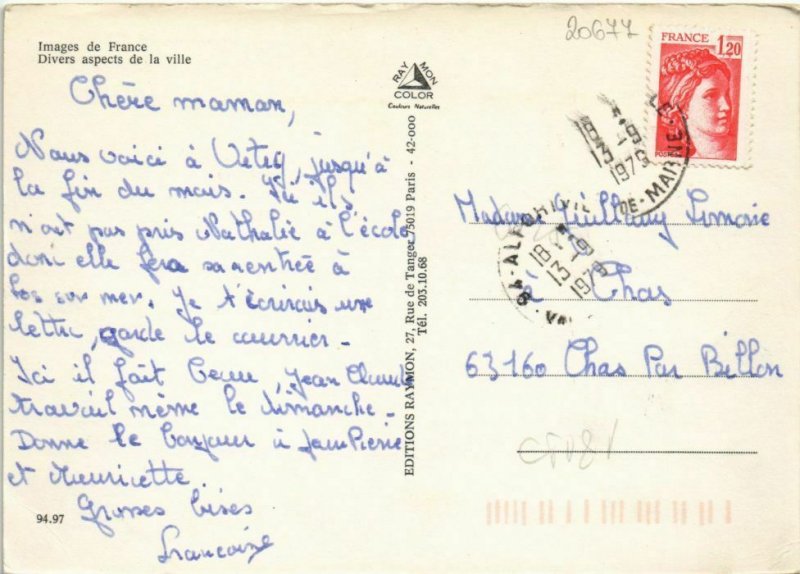 Images de France
Divers aspects de la ville
20677
FRANCE 1,20
RAY MON
COLOR
Couleurs Naturelles
Chère maman,
Nous voici à Vitry, jusqu'à
la fin du mois. Ici ils
n'ont pas pris Nathalie à l'école
donc elle fera sa rentrée à
sur mer. Je t'écrirais une
lettre, garde le courrier.
Ici il fait beau, Jean Claude
travail même le dimanche.
Donne le bonjour à Jean Pierre
et Mauricette
Grosses bises
Francoise
94.97
EDITIONS RAYMON, 27, Rue de Tanger 75019 Paris - 42-000
Tél. 203.10.68
18 H
13-9
1979
DE-MARNE
94-ALFORTVILLE
18 H
13-9
1979
Madame Guillaume Lemoine
à Chas
63160 Chas Par Billom